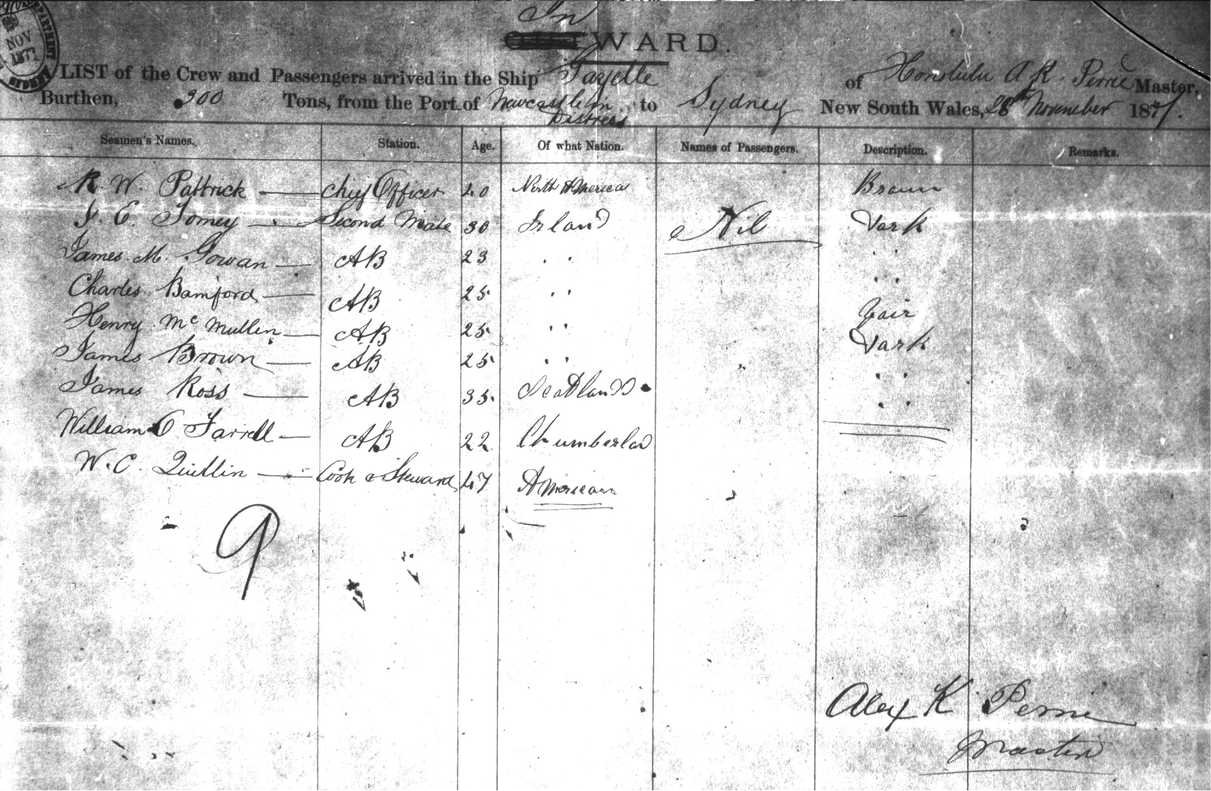 In
WARD.
NOV
1877
A LIST of the Crew and Passengers arrived in the Ship Gazelle of Honolulu A. K. Master,
Burthen, 300 Tons, from the Port of Newcastle in Distress to Sydney New South Wales, 28th November 1877.
Seamen's Names. Station. Age. Of what Nation. Names of Passengers. Description. Remarks.
R W. Pattrick — Chief Officer 40 North America Brown
J. E. Tomey — Second Mate 30 Irland Nil Dark
James M. Gowan — AB 23 " " " "
Charles Bamford — AB 25 " " Fair
Henry Mc Mullen — AB 25 " " Dark
James Brown — AB 25 " " " "
James Ross — AB 35 Scotland " "
William O Farrell — AB 22
W. C. Quillin — Cook & Steward 47 American
9
Alex K
Master